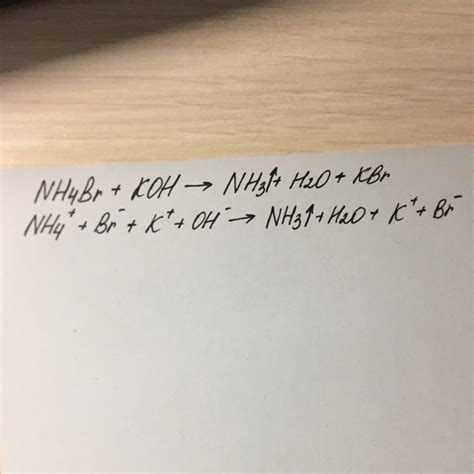 NH₄Br + KOH → NH₃↑ + H₂O + KBr
NH₄⁺ + Br⁻ + K⁺ + OH⁻ → NH₃↑ + H₂O + K⁺ + Br⁻